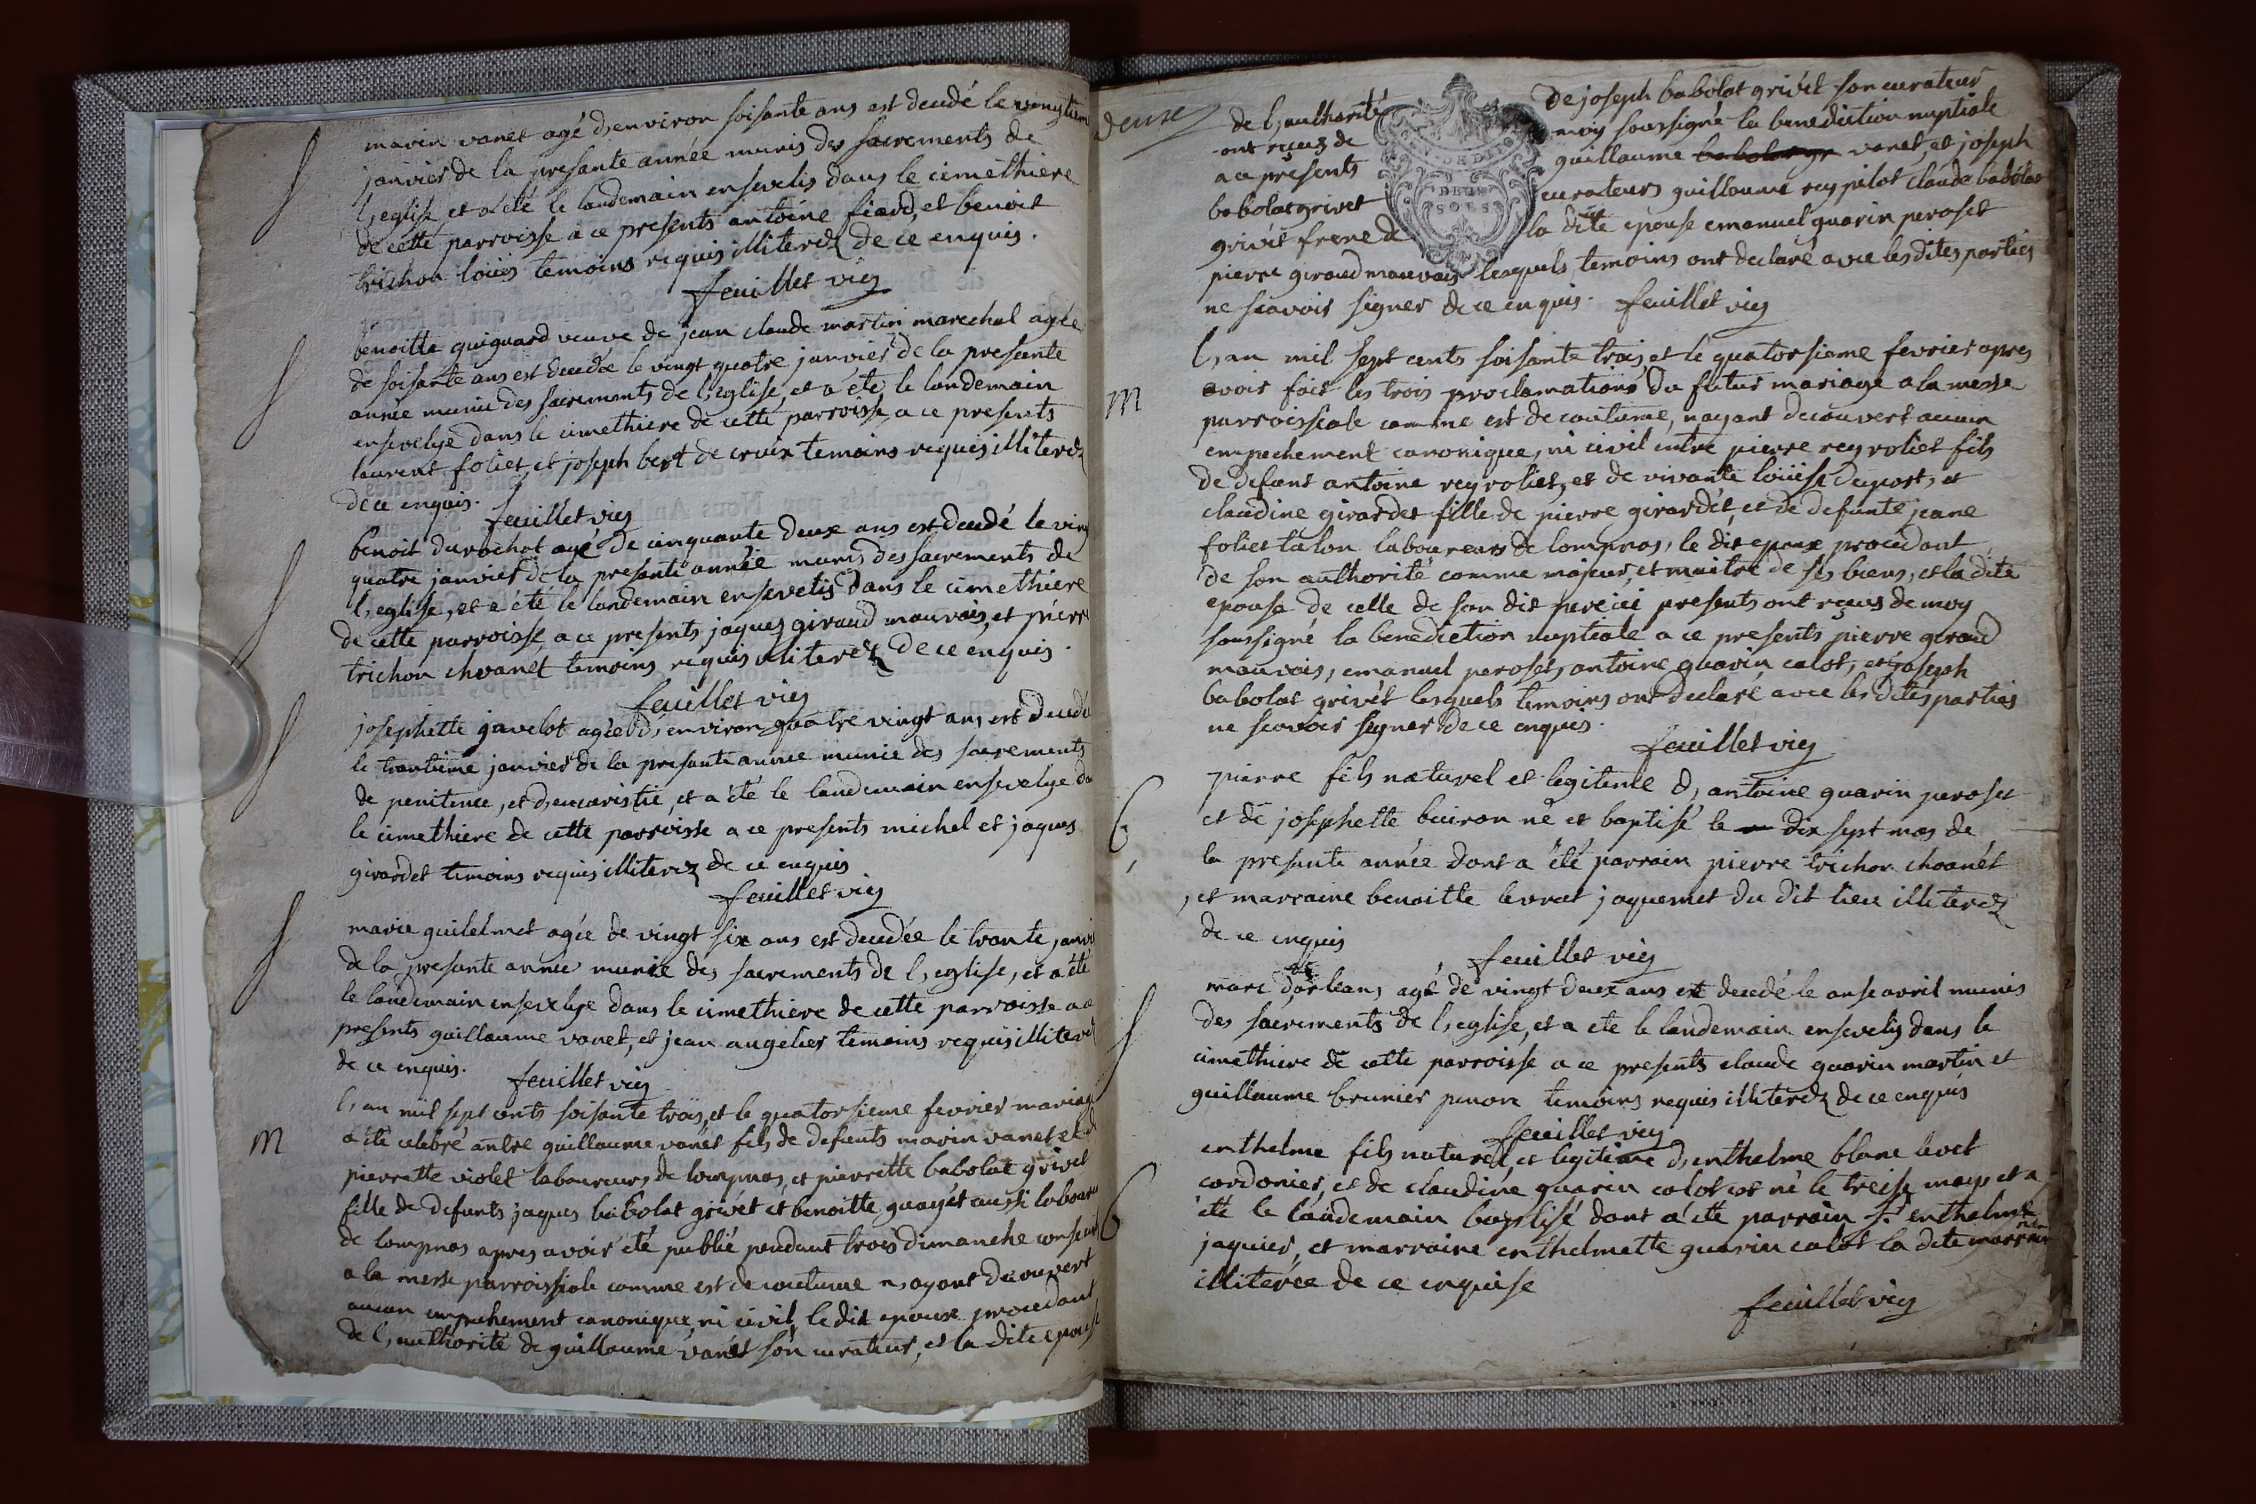 marin vanet agé d,environ soisante ans est decedé le
janvier de la presante année munis des sacrements de
l,eglise et a été le landemain ensevelis dans le cimethiere
de cette parroisse a ce presents antoine fiard, et benoit
trichon loüis temoins requis illiterez de ce enquis.
feuillet vicy
benoitte guiguard veuve de jean claude martin marechal agée
de soisante ans est decedée le vingt quatre janvier de la presante
année munie des sacrements de l,eglise, et a été le landemain
ensevelye dans le cimethiere de cette parroisse a ce presents
laurent foliet, et joseph bert de croix temoins requis illiterez
de ce enquis.
feuillet vicy
benoit durochat agé de cinquante deux ans est decedé le vin
quatre janvier de la presante année munis des sacrements de
l,eglise, et a été le landemain ensevelis dans le cimethiere
de cette parroisse, a ce presents jaques giraud mauvais, et pierre
trichon choanet temoins requis illiterez de ce enquis.
feuillet vicy
josephette javelot agée d,environ quatre vingt ans est decedé
le trantieme janvier de la presante année munie des sacrements
de penitence, et d,eucaristie, et a été le landemain ensevelye da
le cimethiere de cette parroisse a ce presents michel et jaques
girardet temoins requis illiterez de ce enquis
feuillet vicy
marie guilelmet agée de vingt six ans est decedée le trante janvi
de la presante année munie des sacrements de l,eglise, et a été
le landemain ensevelye dans le cimethiere de cette parroisse a ce
presents guillaume vanet, et jean angelier temoins requis illiterez
de ce enquis.
feuillet vicy
M
l,an mil sept cents soisante trois, et le quatorsieme fevrier mariage
a été celebré antre guillaume vanet fils de defunts marin vanet et d
pierrette violet laboureurs de lompnas, et pierrette babolat grivet
fille de defunts jaques babolat grivet et benoitte guayet aussi laboure
de lompnas apres avoir été publié pendant trois dimanche consecu
a la messe parroissiale comme est de coutume n,ayant decouvert
aucun empechement canonique, ni civil, le dit epoux procedant
de l,authorité de guillaume vanet son curateur, et la dite epouse
deux
de l,authorité de joseph babolat grivet son curateur
ont reçeuz de moy soussigné la benediction nuptiale
a ce presents guillaume vanet, et joseph
babolat grivet curateurs guillaume rey pilot claude babolat
grivet frere de la dite epouse emanuel guarin peroset
pierre giraud mauvais lesquels temoins ont declaré avec les dites parties
ne scavoir signer de ce enquis. feuillet vicy
M
l,an mil sept cents soisante trois, et le quatorsieme fevrier apres
avoir fait les trois proclamations du futur mariage a la messe
parroissiale comme est de coutume, nayant decouvert aucun
empechement canonique, ni civil entre pierre rey roliet fils
de defunt antoine rey roliet, et de vivante loüise duport, et
claudine girardet fille de pierre girardet, et de defunte jeane
foliet talon laboureurs de lompnas, le dit epoux procedant
de son authorité comme majeur, et maitre de ses biens, et la dite
epouse de celle de son dit pere ici presents ont reçeus de moy
soussigné la benediction nuptiale a ce presents pierre giraud
mauvais, emanuel peroset, antoine guarin calot, et joseph
babolat grivet lesquels temoins ont declaré avec les dites parties
ne scavoir signer de ce enquis.
feuillet vicy
pierre fils naturel et legitime d, antoine guarin peroset
et de josephette buiron né et baptisé le dix sept mars de
la presente année dont a été parrain pierre trichon choanet
, et marraine benoitte levrat jaquemet du dit lieu illiterez
de ce enquis
feuillet vicy
marc dorleans agé de vingt deux ans est decedé le onse avril munis
des sacrements de l,eglise, et a ete le landemain ensevelis dans le
cimethiere de cette parroisse a ce presents claude guarin martin et
guillaume brunier penon temoins requis illiterez de ce enquis
feuillet vicy
enthelme fils naturel, et legitime d,enthelme blanc levet
cordonier, et de claudine guarin calot est né le treise mays et a
été le landemain baptisé dont a été parrain Sr enthelme
jaquier, et marraine enthelmette guarin calot la dite marraine
illiterée de ce enquise
feuillet vicy